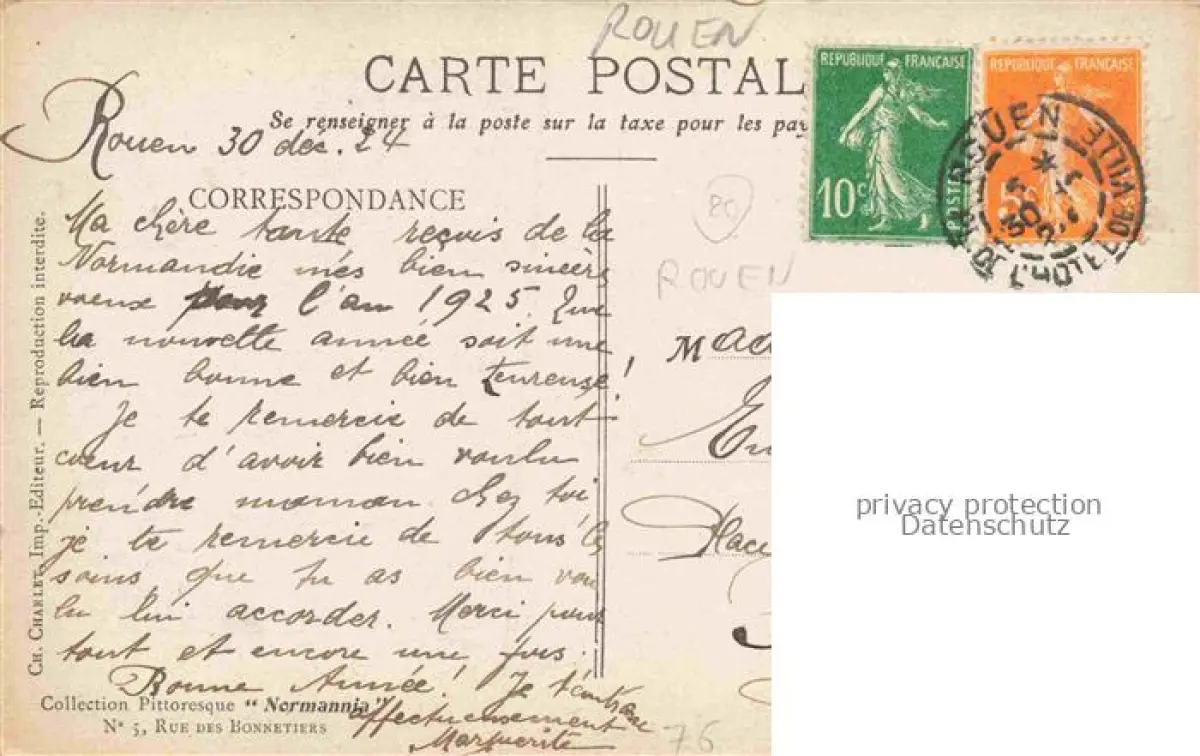 ROUEN
CARTE POSTAL
Se renseigner à la poste sur la taxe pour les pay
REPUBLIQUE FRANÇAISE
10c
POSTES
REPUBLIQUE FRANÇAISE
5c
ROUEN
DE L'HOTEL DE VILLE
30
Rouen 30 déc. 24
CORRESPONDANCE
80
ROUEN
Ma chère tante reçois de la
Normandie mes bien sincèrs
voeux pour l'an 1925. Que
la nouvelle année soit une
bien bonne et bien heureuse!
Je te remercie de tout
coeur d'avoir bien voulu
prendre maman chez toi
je te remercie de tous les
soins que tu as bien vou
lu lui accorder. Merci pour
tout et encore une fois.
Bonne Année! Je t'embrasse
affectueusement
Marguerite
Mad
Place
76
Ch. Charlet, Imp.-Editeur. — Reproduction interdite.
Collection Pittoresque "Normannia"
N° 5, Rue des Bonnetiers
privacy protection
Datenschutz